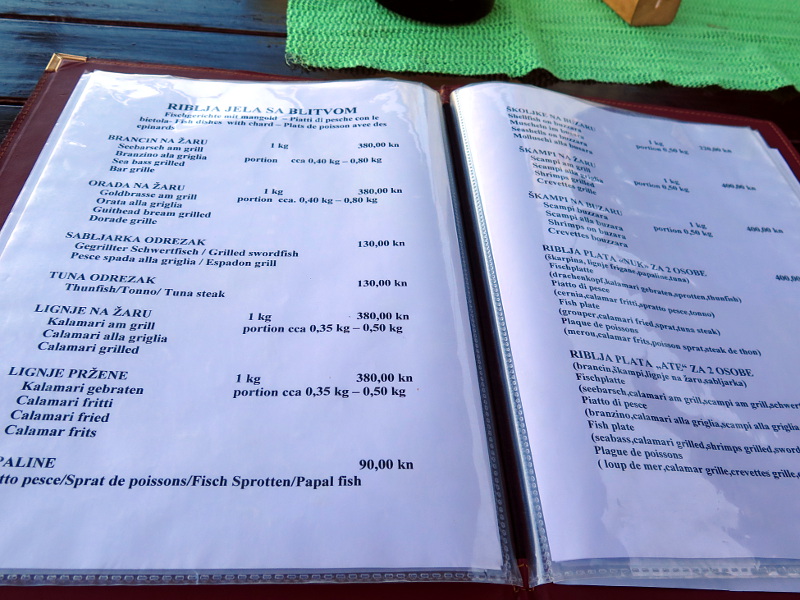 RIBLJA JELA SA BLITVOM
Fischgerichte mit mangold – Piatti di pesche con le
bietola- Fish dishes with chard – Plats de poisson avec des
epinards
BRANCIN NA ŽARU 1 kg 380,00 kn
Seebarsch am grill
Branzino ala griglia portion cca 0,40 kg – 0,80 kg
Sea bass grilled
Bar grille
ORADA NA ŽARU 1 kg 380,00 kn
Goldbrasse am grill portion cca. 0,40 kg – 0,80 kg
Orata alla griglia
Guithead bream grilled
Dorade grille
SABLJARKA ODREZAK 130,00 kn
Gegrillter Schwertfisch / Grilled swordfish
Pesce spada alla griglia / Espadon grill
TUNA ODREZAK 130,00 kn
Thunfish/Tonno/ Tuna steak
LIGNJE NA ŽARU 1 kg 380,00 kn
Kalamari am grill portion cca 0,35 kg – 0,50 kg
Calamari alla griglia
Calamari grilled
LIGNJE PRŽENE 1 kg 380,00 kn
Kalamari gebraten portion cca 0,35 kg – 0,50 kg
Calamari fritti
Calamari fried
Calamar frits
PALINE 90,00 kn
tto pesce/Sprat de poissons/Fisch Sprotten/Papal fish
ŠKOLJKE NA BUZARU
Shelfish on buzzara 1 kg
Moscheln im buzzara portion 0,50 kg
Seashells on buzzara
Molluschi alla buzzara
ŠKAMPI NA ŽARU
Scampi am grill 1 kg 400,00 kn
Scampi alla griglia portion 0,50 kg
Shrimps grilled
Crevettes grille
ŠKAMPI NA BUZARU
Scampi buzzara 1 kg 400,00 kn
Scampi alla buzara portion 0,50 kg
Shrimps on buzara
Crevettes bouzzara
RIBLJA PLATA »NUK« ZA 2 OSOBE 400,00
(škarpina, lignje frigane,papalina,tuna)
Fischplatte
(drachenkopf,kalamari gebraten,sprotten,thunfish)
Piatto di pesce
(cernia,calamar fritti,spratto pesce,tonno)
Fish plate
(grouper,calamari fried,sprat,tuna steak)
Plaque de poissons
(merou,calamar frits,poisson sprat,steak de thon)
RIBLJA PLATA „ATE“ ZA 2 OSOBE
(brancin,škampi,lignje na žaru,sabljarka)
Fischplatte
(seebarsch,calamari am grill,scampi am grill,schwert
Piatto di pesce
(branzino,calamari alla griglia,scampi alla griglia
Fish plate
(seabass,calamari grilled,shrimps grilled,sword
Plague de poissons
( loup de mer,calamar grille,crevettes grille,